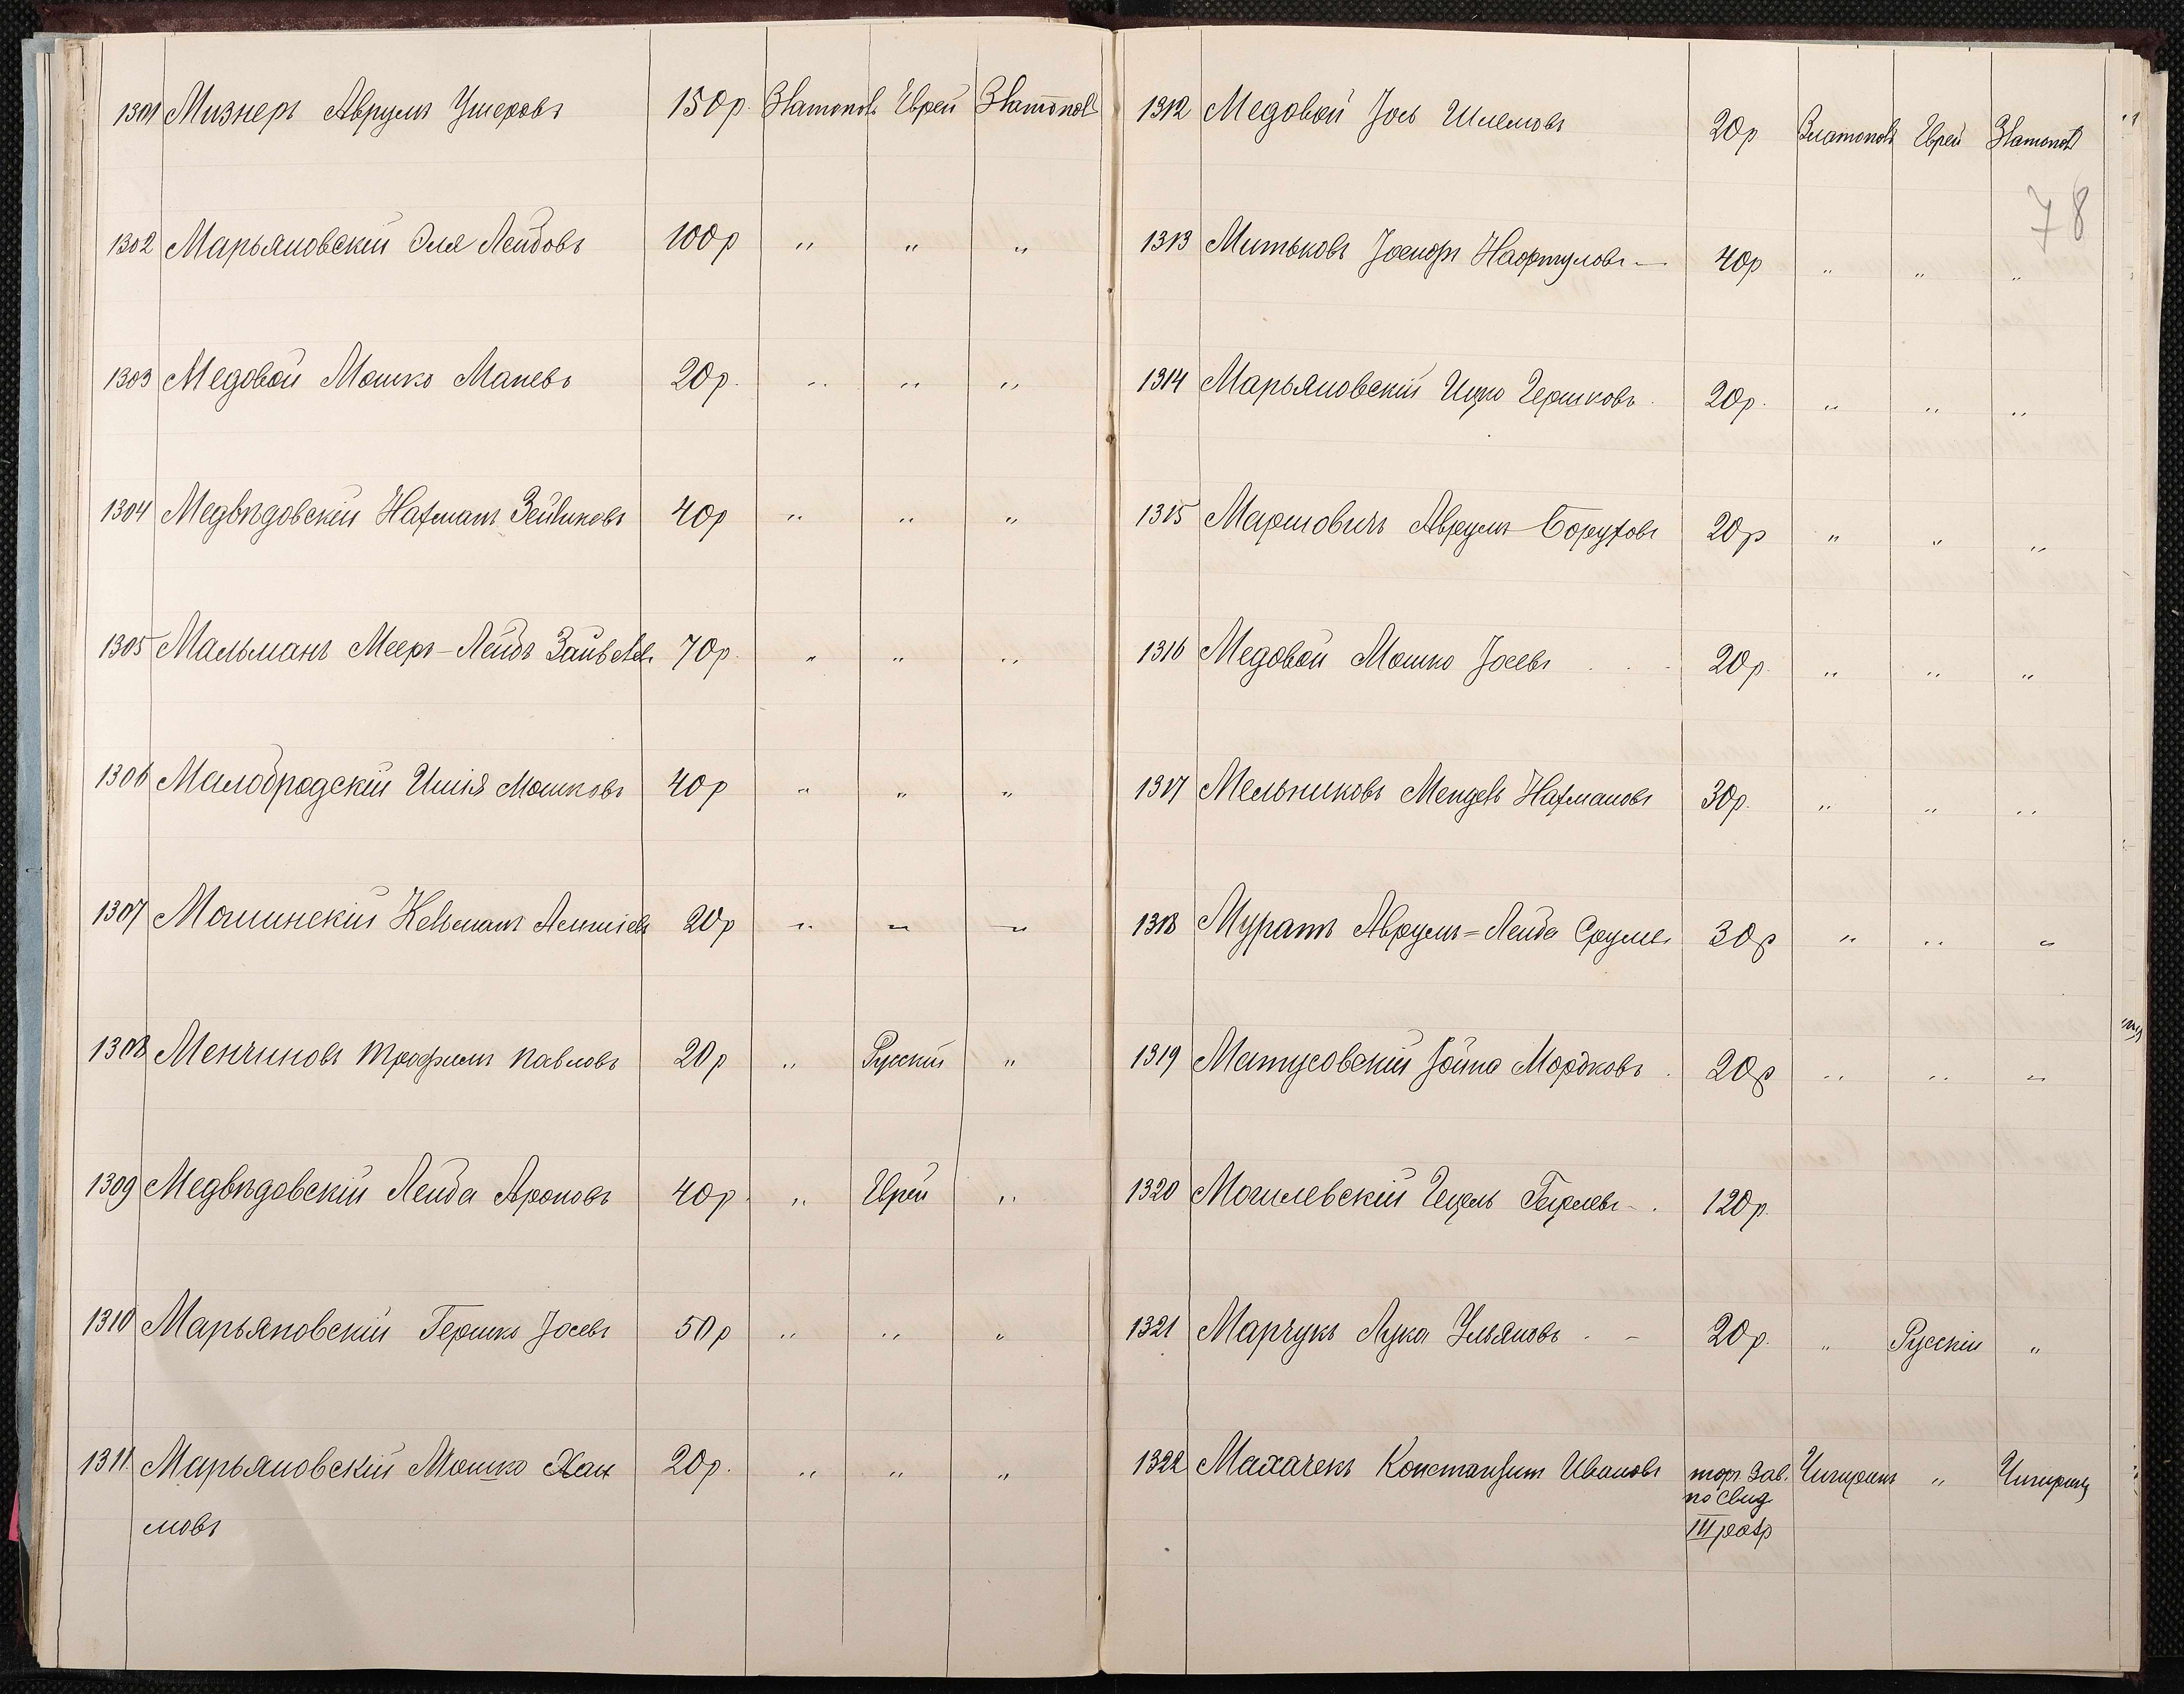 1301 Мизнеръ Аврумъ Ушеровъ 150р. Златополь Еврей Златополь
1302 Марьяновскій Эля Лейбовъ 100р " " "
1303 Медовой Мошко Маневъ 20р. " " "
1304 Медвѣдовскій Нахманъ Зейликовъ 40р " " "
1305 Мальманъ Мееръ-Лейбъ 70р. " " "
1306 Малобродскій Мошковъ 40р " " "
1307 Мошинскій Кельманъ 20р " " "
1308 Менчиновъ Трофимъ Павловъ 20р " Русскій "
1309 Медвѣдовскій Лейба Ароновъ 40р. " Еврей "
1310 Марьяновскій Гершко Іосевъ 50р " " "
1311. Марьяновскій Мошко Хаи 20р. " " "
мовъ
1312 Медовой Іось Шлемовъ 20р Златополь Еврей Златополь
78
1313 Митьковъ Іосифъ Нафтуловъ — 40р " " "
1314 Марьяновскій Ицко Гершковъ 20р. " " "
1315 Маршовичъ Аврумъ Боруховъ 20р " " "
1316 Медовой Мошко Іосевъ 20р. " " "
1317 Мельниковъ Мендель Нахмановъ 30р. " " "
1318 Муратъ Аврумъ=Лейба 30р " " "
1319 Матусовскій Іойна Мордковъ 20р " " "
1320 Могилевскій 120р.
1321 Марчукъ Лука Ульяновъ - 20р. " Русскій "
1322 Махачекъ Константинъ Ивановъ торг. зав. Чигиринъ " Чигиринъ
по свид.
III разр